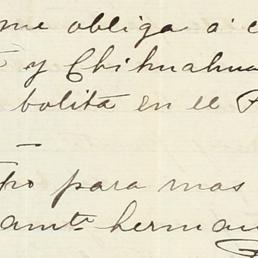 me obliga á
y Chihuahua
bolita en el
para mas
amtª herman